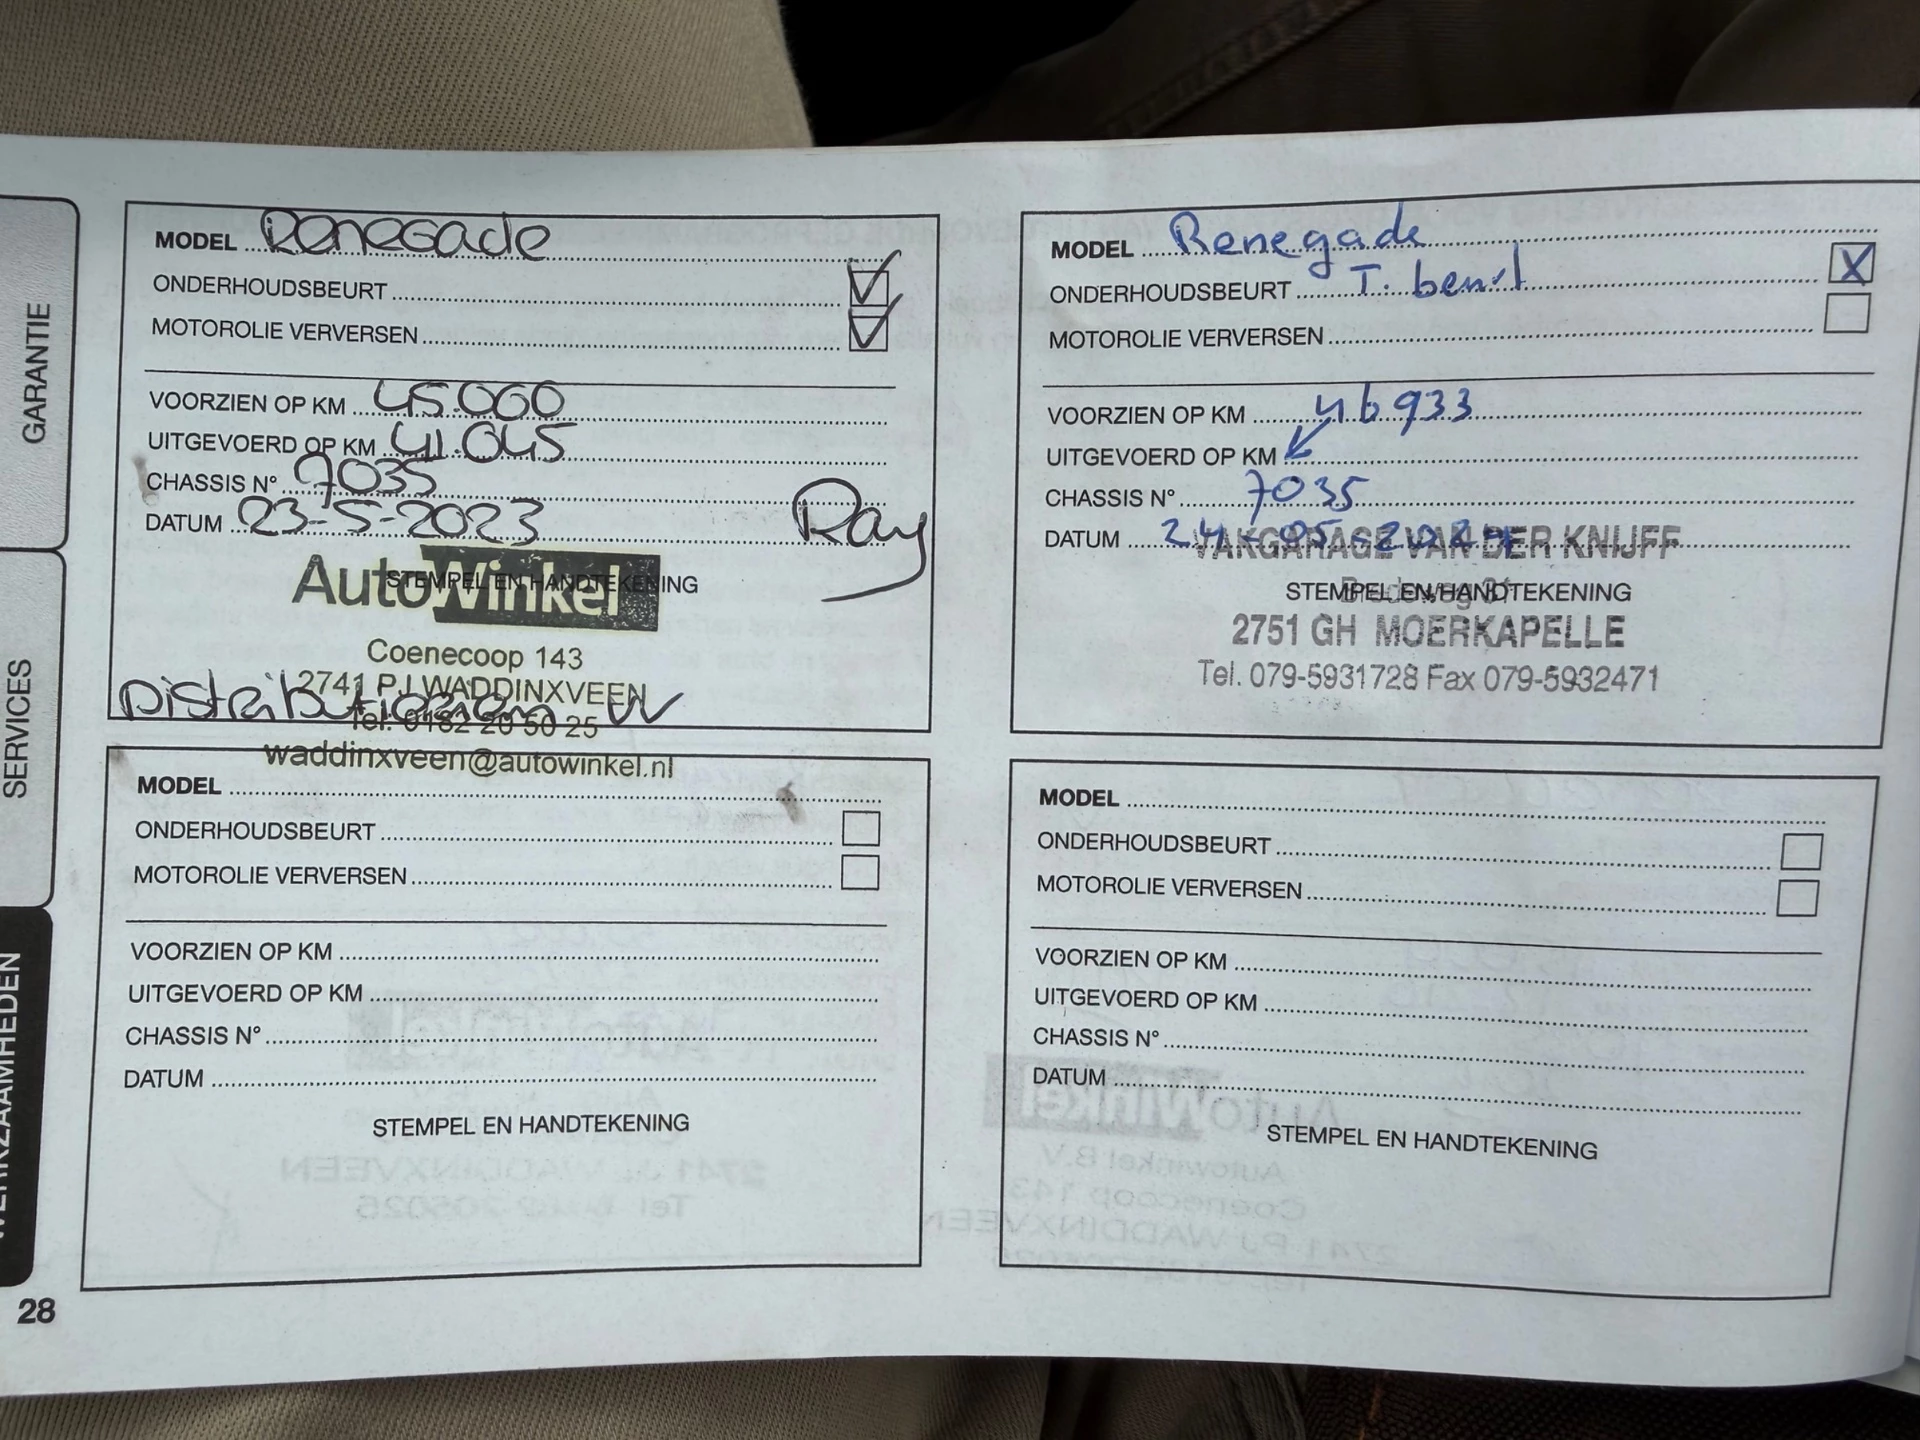 GARANTIE
SERVICES
WERKZAAMHEDEN
MODEL Renegade
ONDERHOUDSBEURT
MOTOROLIE VERVERSEN
VOORZIEN OP KM 45.000
UITGEVOERD OP KM 41.045
CHASSIS N° 7035
DATUM 23-5-2023
Ray
STEMPEL EN HANDTEKENING
AutoWinkel
Coenecoop 143
2741 PJ WADDINXVEEN
Distributieriem VV
Tel. 0182 20 50 25
waddinxveen@autowinkel.nl
MODEL Renegade
ONDERHOUDSBEURT T. beurt X
MOTOROLIE VERVERSEN
VOORZIEN OP KM 46933
UITGEVOERD OP KM
CHASSIS N° 7035
DATUM 24-05-2024
VAKGARAGE VAN DER KNIJFF
STEMPEL EN HANDTEKENING
Bredeweg 31
2751 GH MOERKAPELLE
Tel. 079-5931728 Fax 079-5932471
MODEL
ONDERHOUDSBEURT
MOTOROLIE VERVERSEN
VOORZIEN OP KM
UITGEVOERD OP KM
CHASSIS N°
DATUM
STEMPEL EN HANDTEKENING
MODEL
ONDERHOUDSBEURT
MOTOROLIE VERVERSEN
VOORZIEN OP KM
UITGEVOERD OP KM
CHASSIS N°
DATUM
STEMPEL EN HANDTEKENING
28